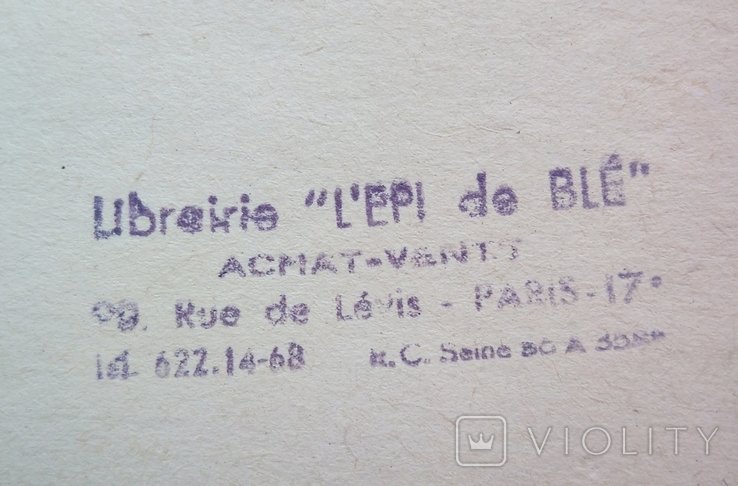 Librairie "L'EPI de BLÉ"
ACHAT-VENTE
Rue de Lévis - PARIS-17e
Tél. 622.14-68 R.C. Seine 60 A
VIOLITY